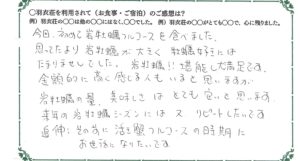 ○羽衣荘を利用されて（お食事・ご宿泊）のご感想は？
例）羽衣荘の○○は他の○○にはなく、○○でした。 例）羽衣荘の○○がとても○○で、心に残りました。
今日、初めて岩牡蠣フルコースを食べました。
思ってたより岩牡蠣が大きく 牡蠣好きには
たまりませでした。岩牡蠣!! 堪能し大満足です。
金額的に高く感じる人もいると思いますが
岩牡蠣の量、美味しさは とても良いと思います。
来年の岩牡蠣シーズンには又リピートしたいです
追伸：その前に活蟹フルコースの時期に
お世話になりたいです